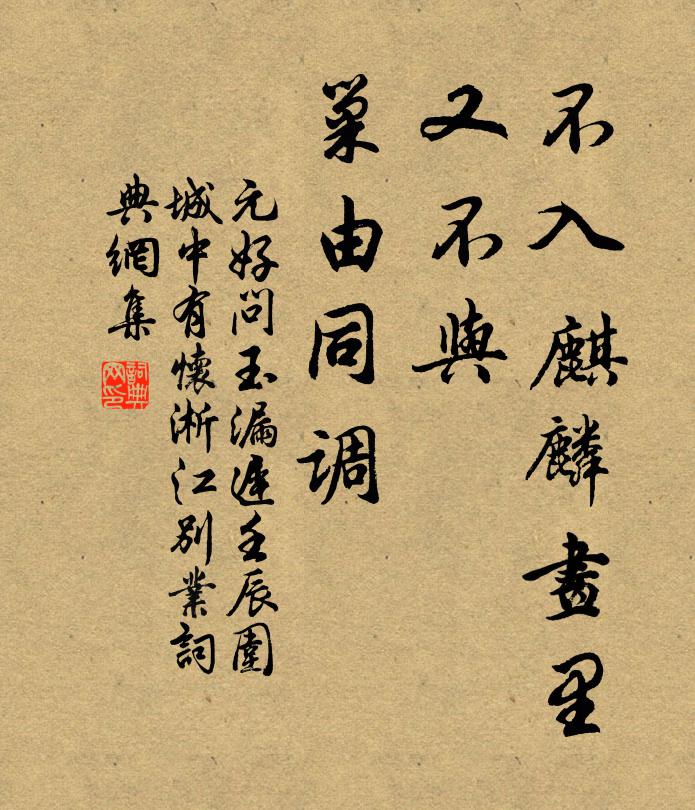 不入麒麟畫里
又不與
巢由同調
元好問玉漏遲壬辰圍
城中有懷淅江別業詞
典網集
詞典網印